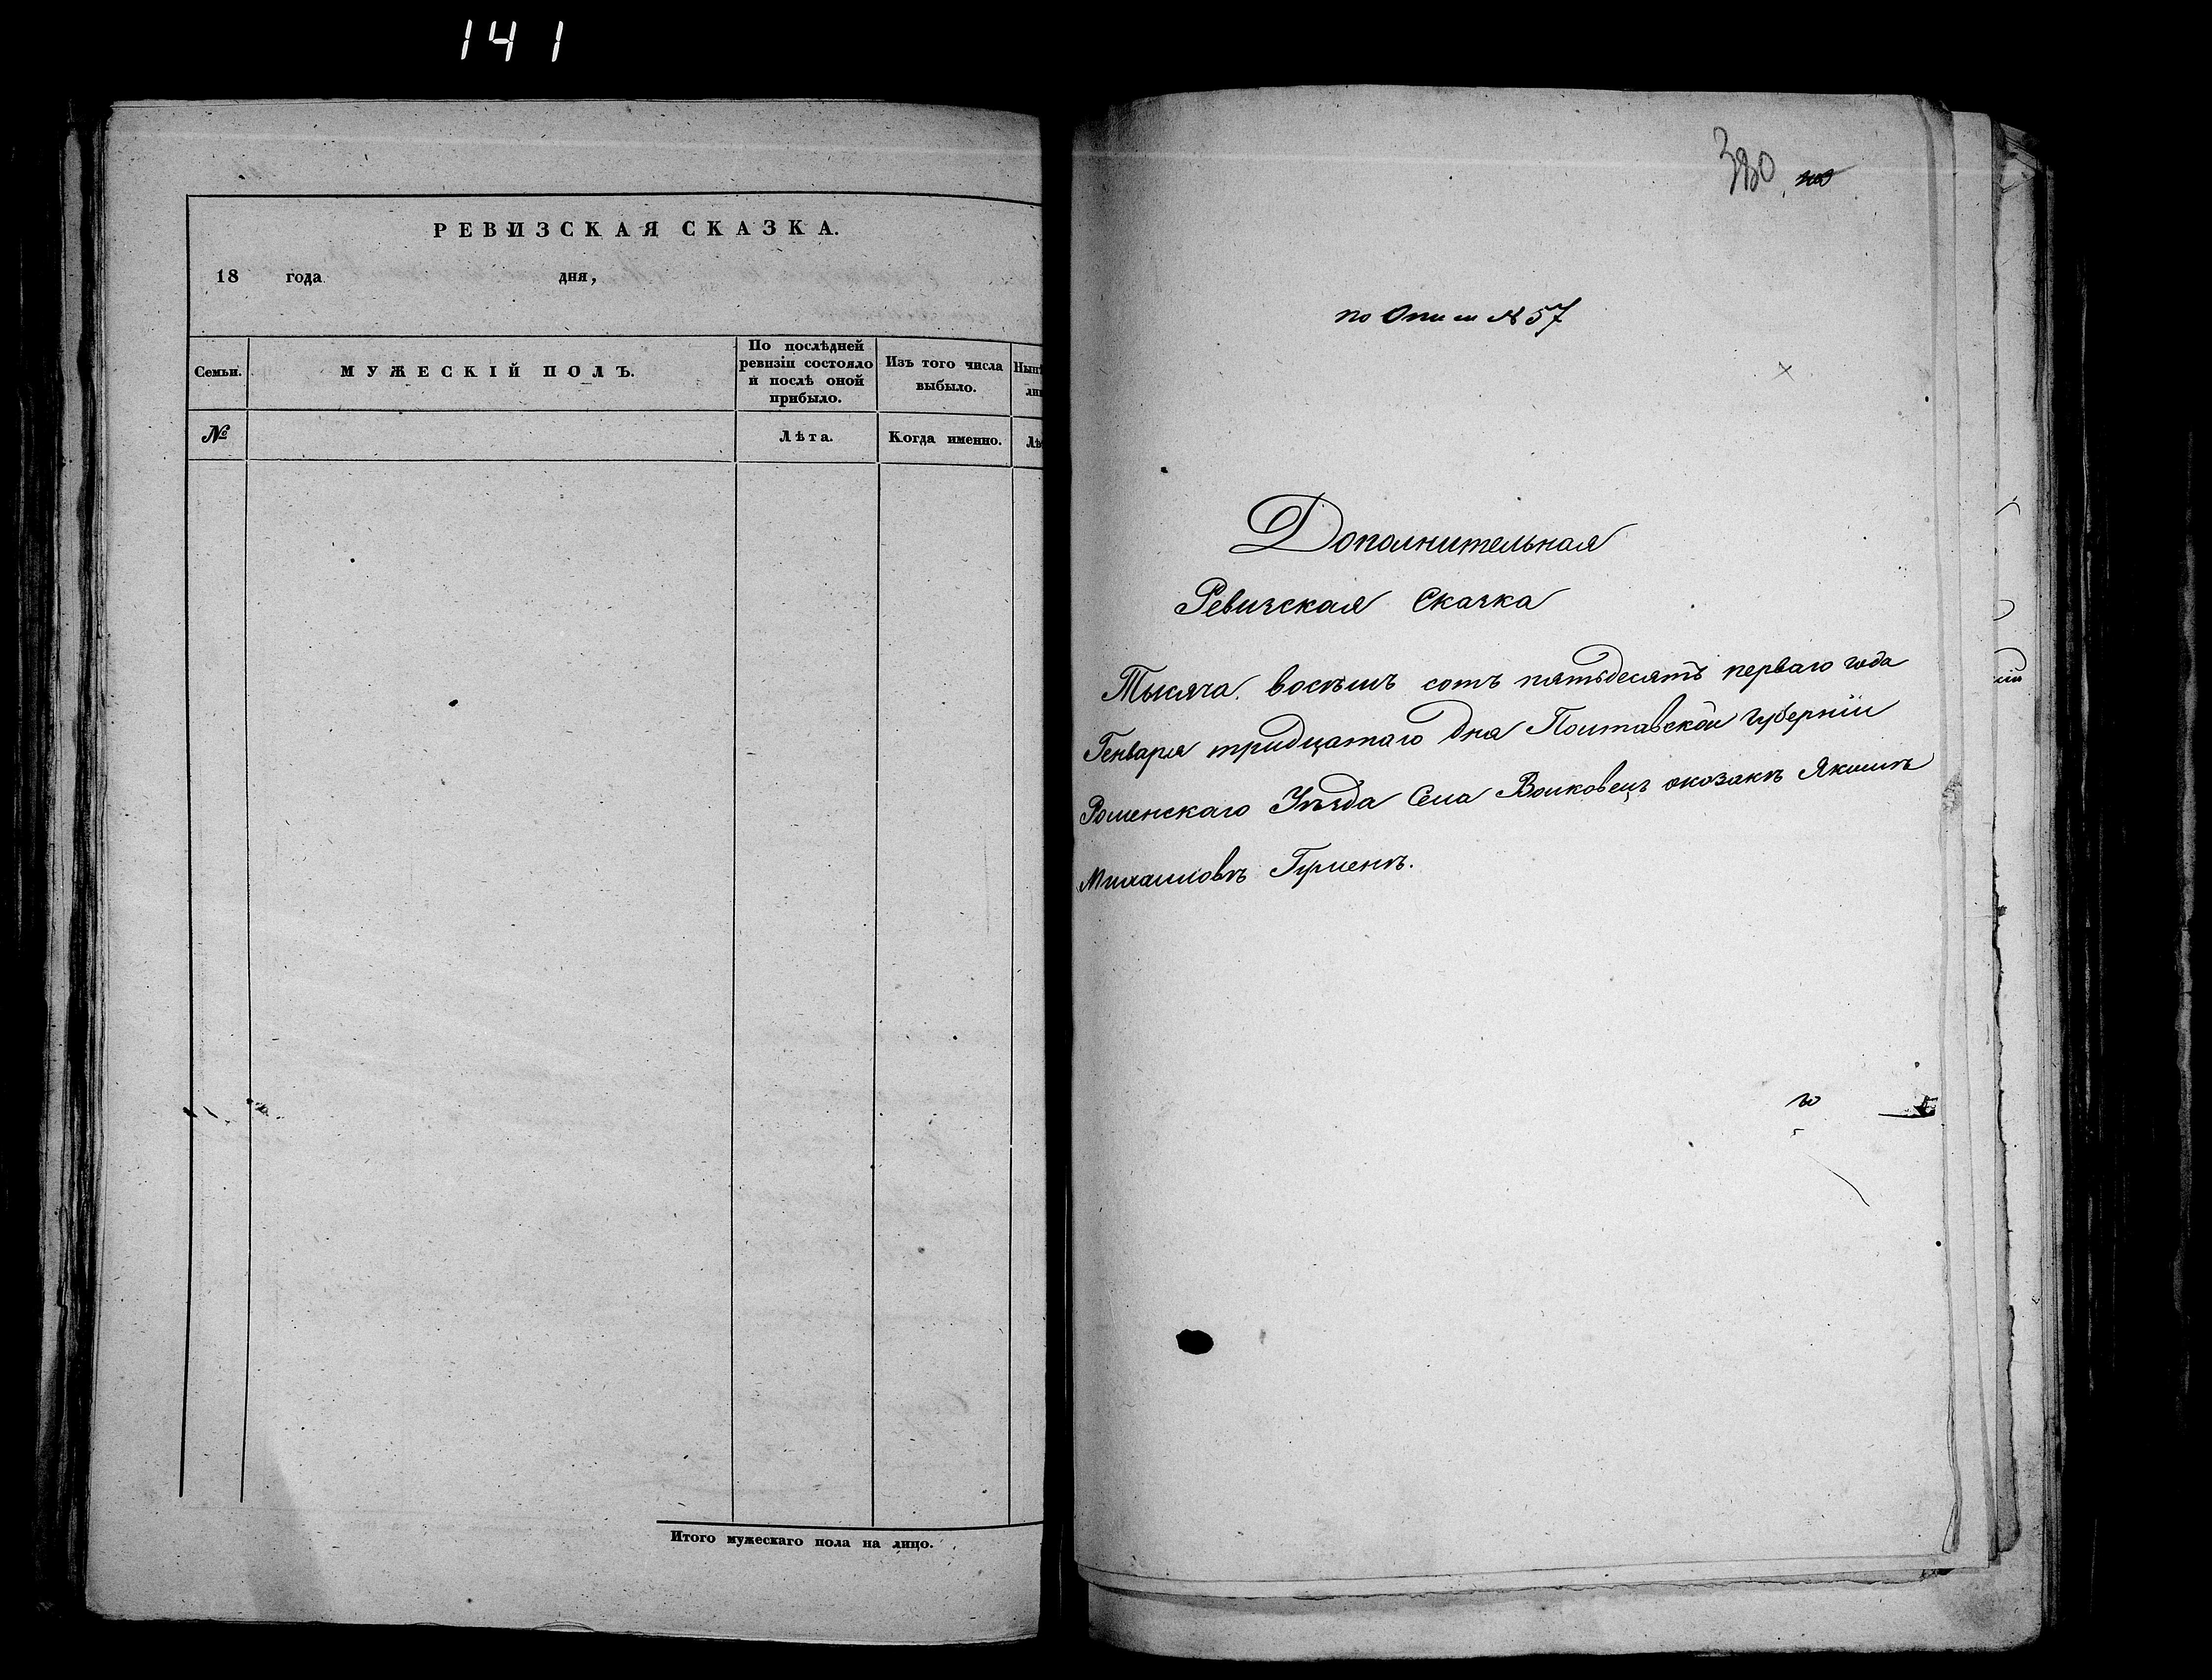 141
РЕВИЗСКАЯ СКАЗКА.
18 года дня,
Семьи.
МУЖЕСКІЙ ПОЛЪ.
По послѣдней
ревизіи состояло
и послѣ оной
прибыло.
Изъ того числа
выбыло.
№
Лѣта.
Когда именно.
Итого мужескаго пола на лицо.
380
по Описи № 57
Дополнительная
Ревизская Сказка
Тысяча восѣмъ сотъ пятьдесятъ перваго года
Генваря тридцатаго дня Полтавской губерніи
Роменскаго Уѣзда Села Волковецъ
Гуменѣ.